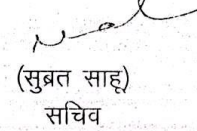 (सुब्रत साहू)
सचिव